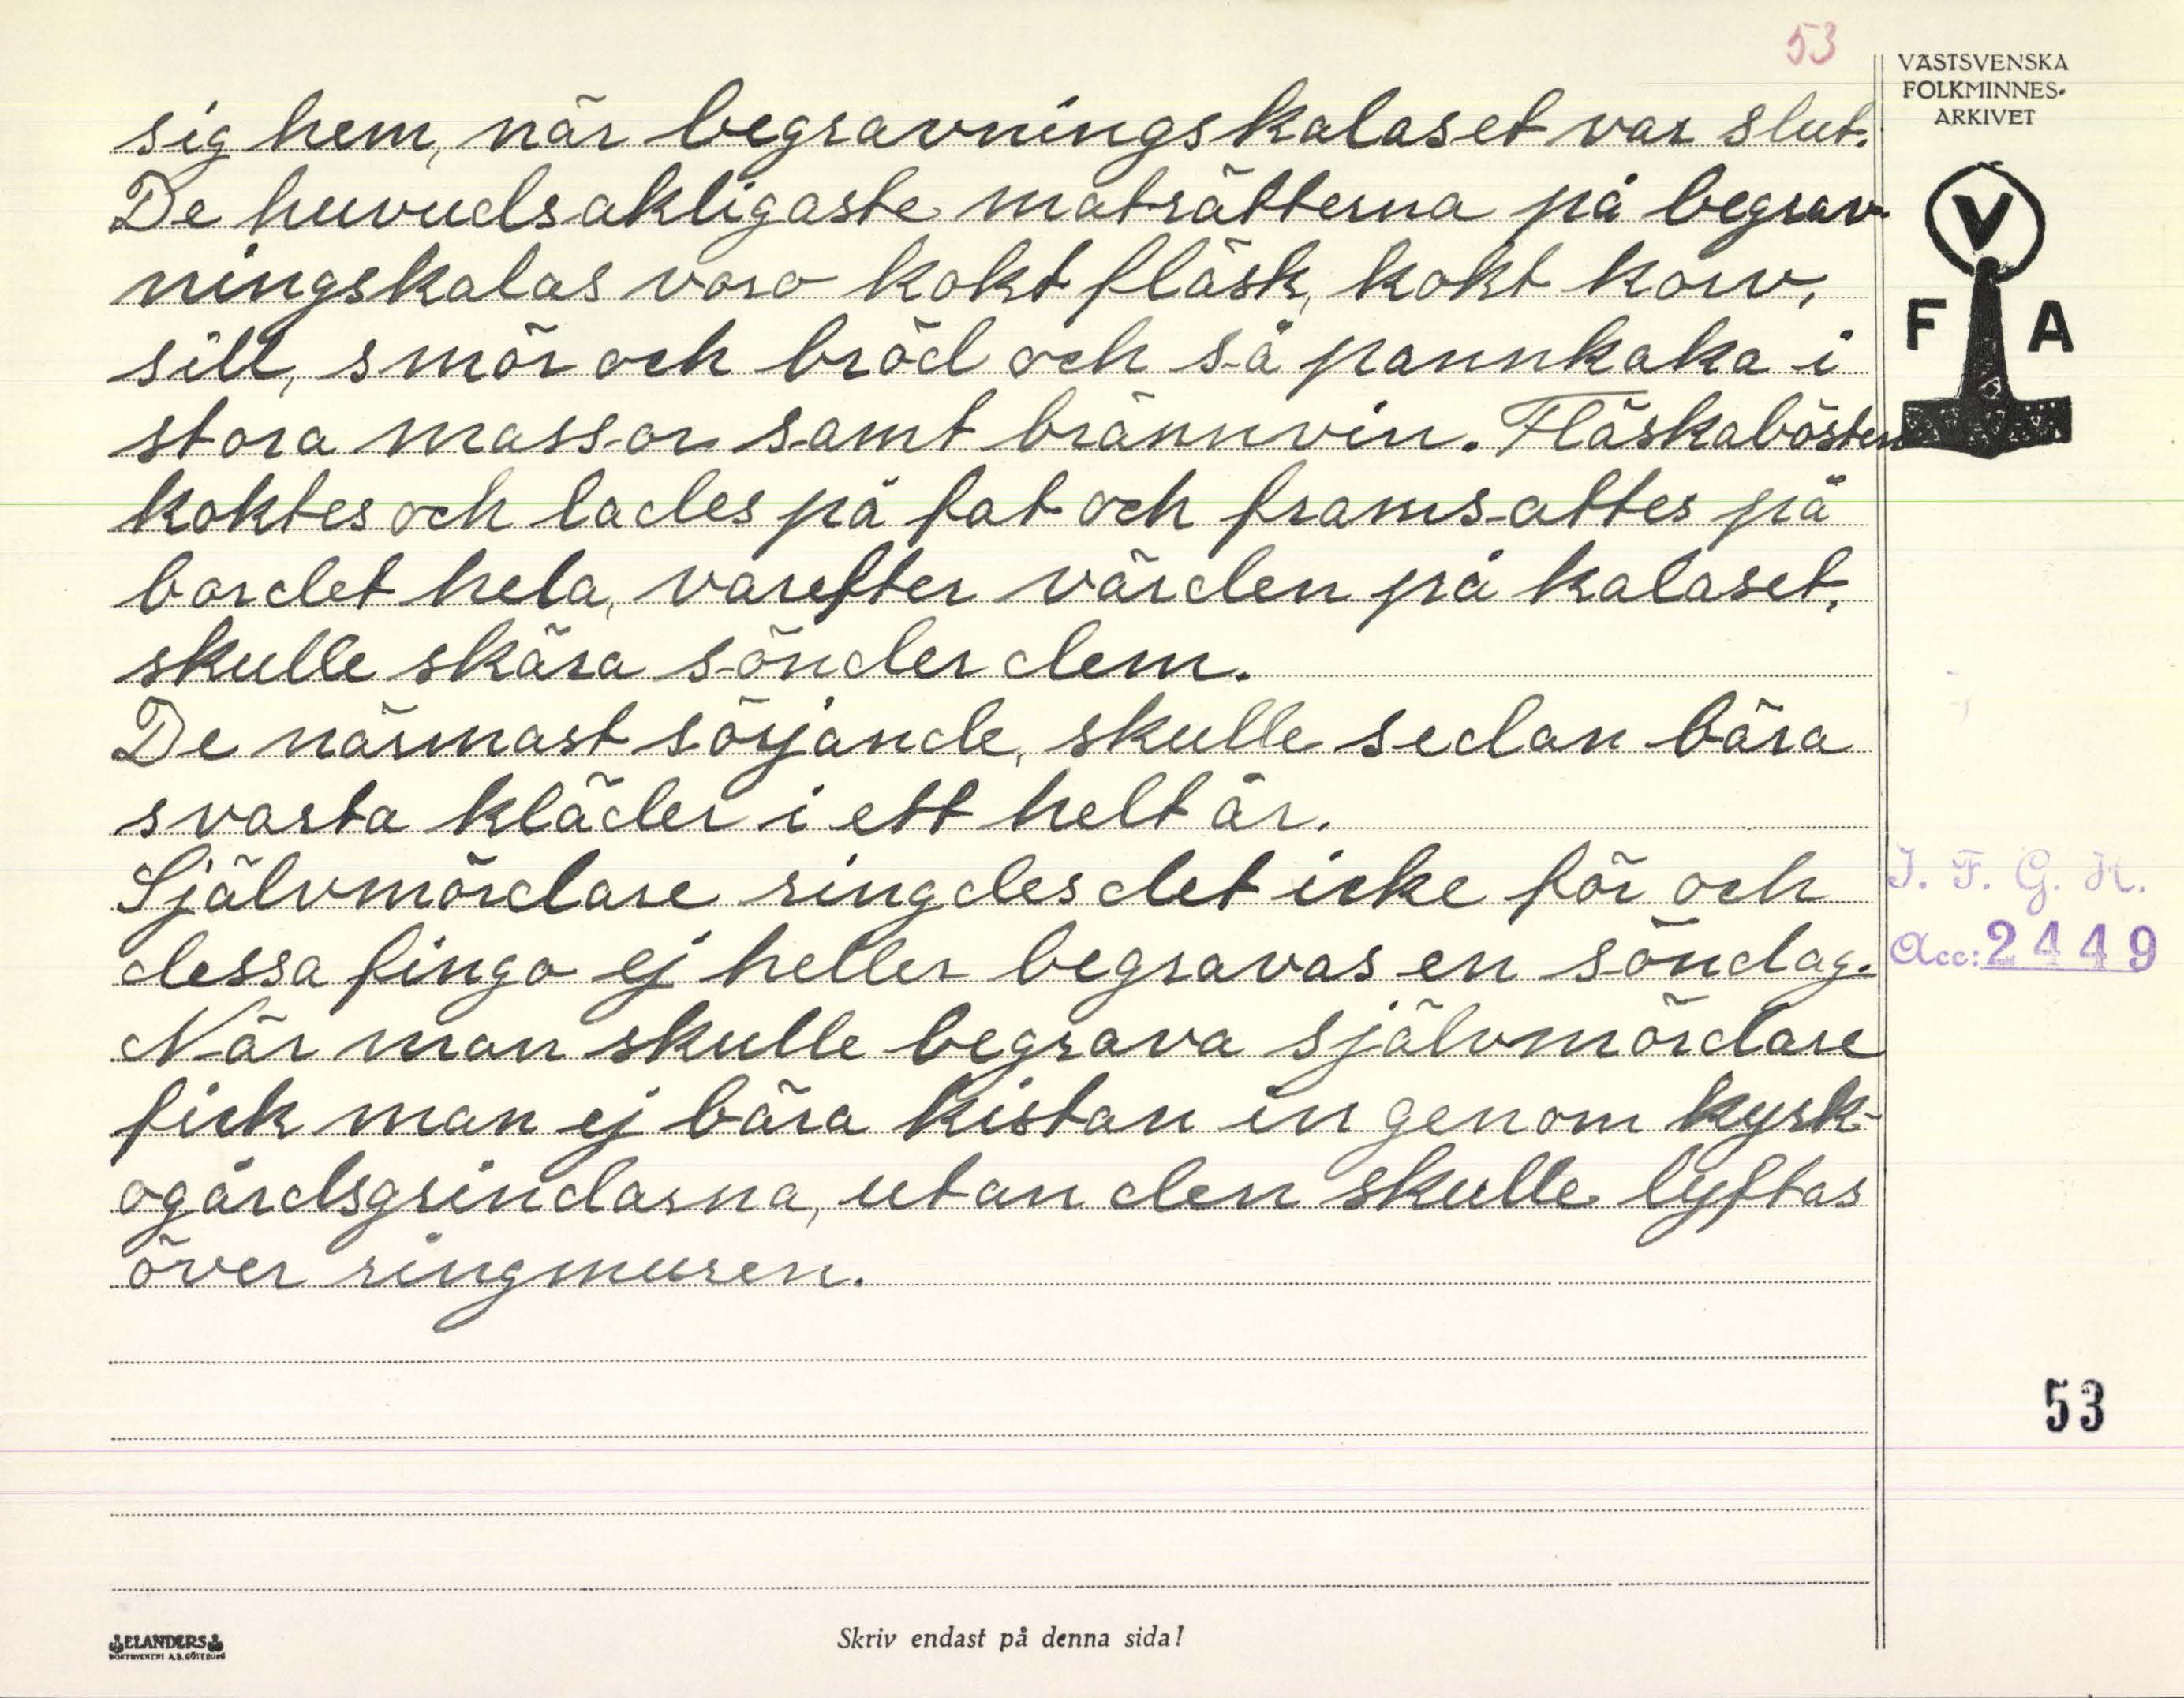 53
VÄSTSVENSKA
FOLKMINNES-
ARKIVET
V
F A
sig hem, när begravningskalaset var slut.
De huvudsakligaste maträtterna på begrav-
ningskalas voro kokt fläsk, kokt korv,
sill, smör och bröd och så pannkaka i
stora massor samt brännvin. Fläskabösten
koktes och lades på fat och framsattes på
bordet hela, varefter värden på kalaset,
skulle skära sönder dem.
De närmast sörjande, skulle sedan bära
svarta kläder i ett helt år.
Självmördare ringdes det icke för och
dessa fingo ej heller begravas en söndag.
När man skulle begrava självmördare
fick man ej bära kistan in genom kyrk-
ogårdsgrindarna, utan den skulle lyftas
över ringmuren.
I. F. G. H.
Acc: 2449
53
ELANDERS
BOKTRYCKERI A.B. GÖTEBORG
Skriv endast på denna sida!